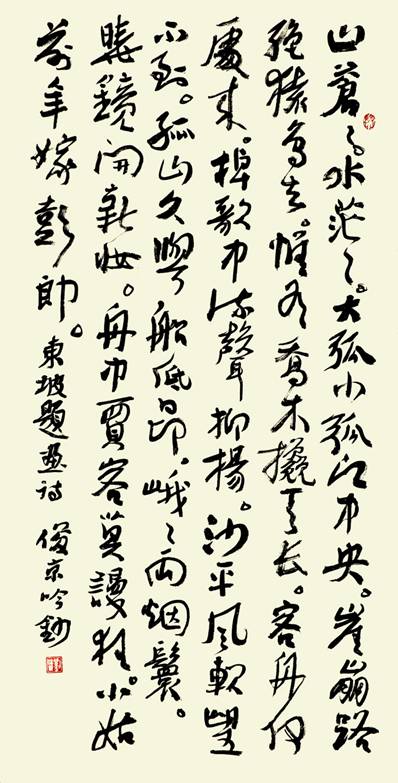 山蒼〻水茫〻。大孤小孤江中央。崖崩路
絕猿鳥去。惟有喬木攙天長。客舟何
處來。棹歌中流聲抑揚。沙平風軟望
不到。孤山久與船低昂。峨〻兩烟鬟。
曉鏡開新妝。舟中賈客莫謾狂。小姑
前年嫁彭郎。東坡題畫詩 俊京吟鈔